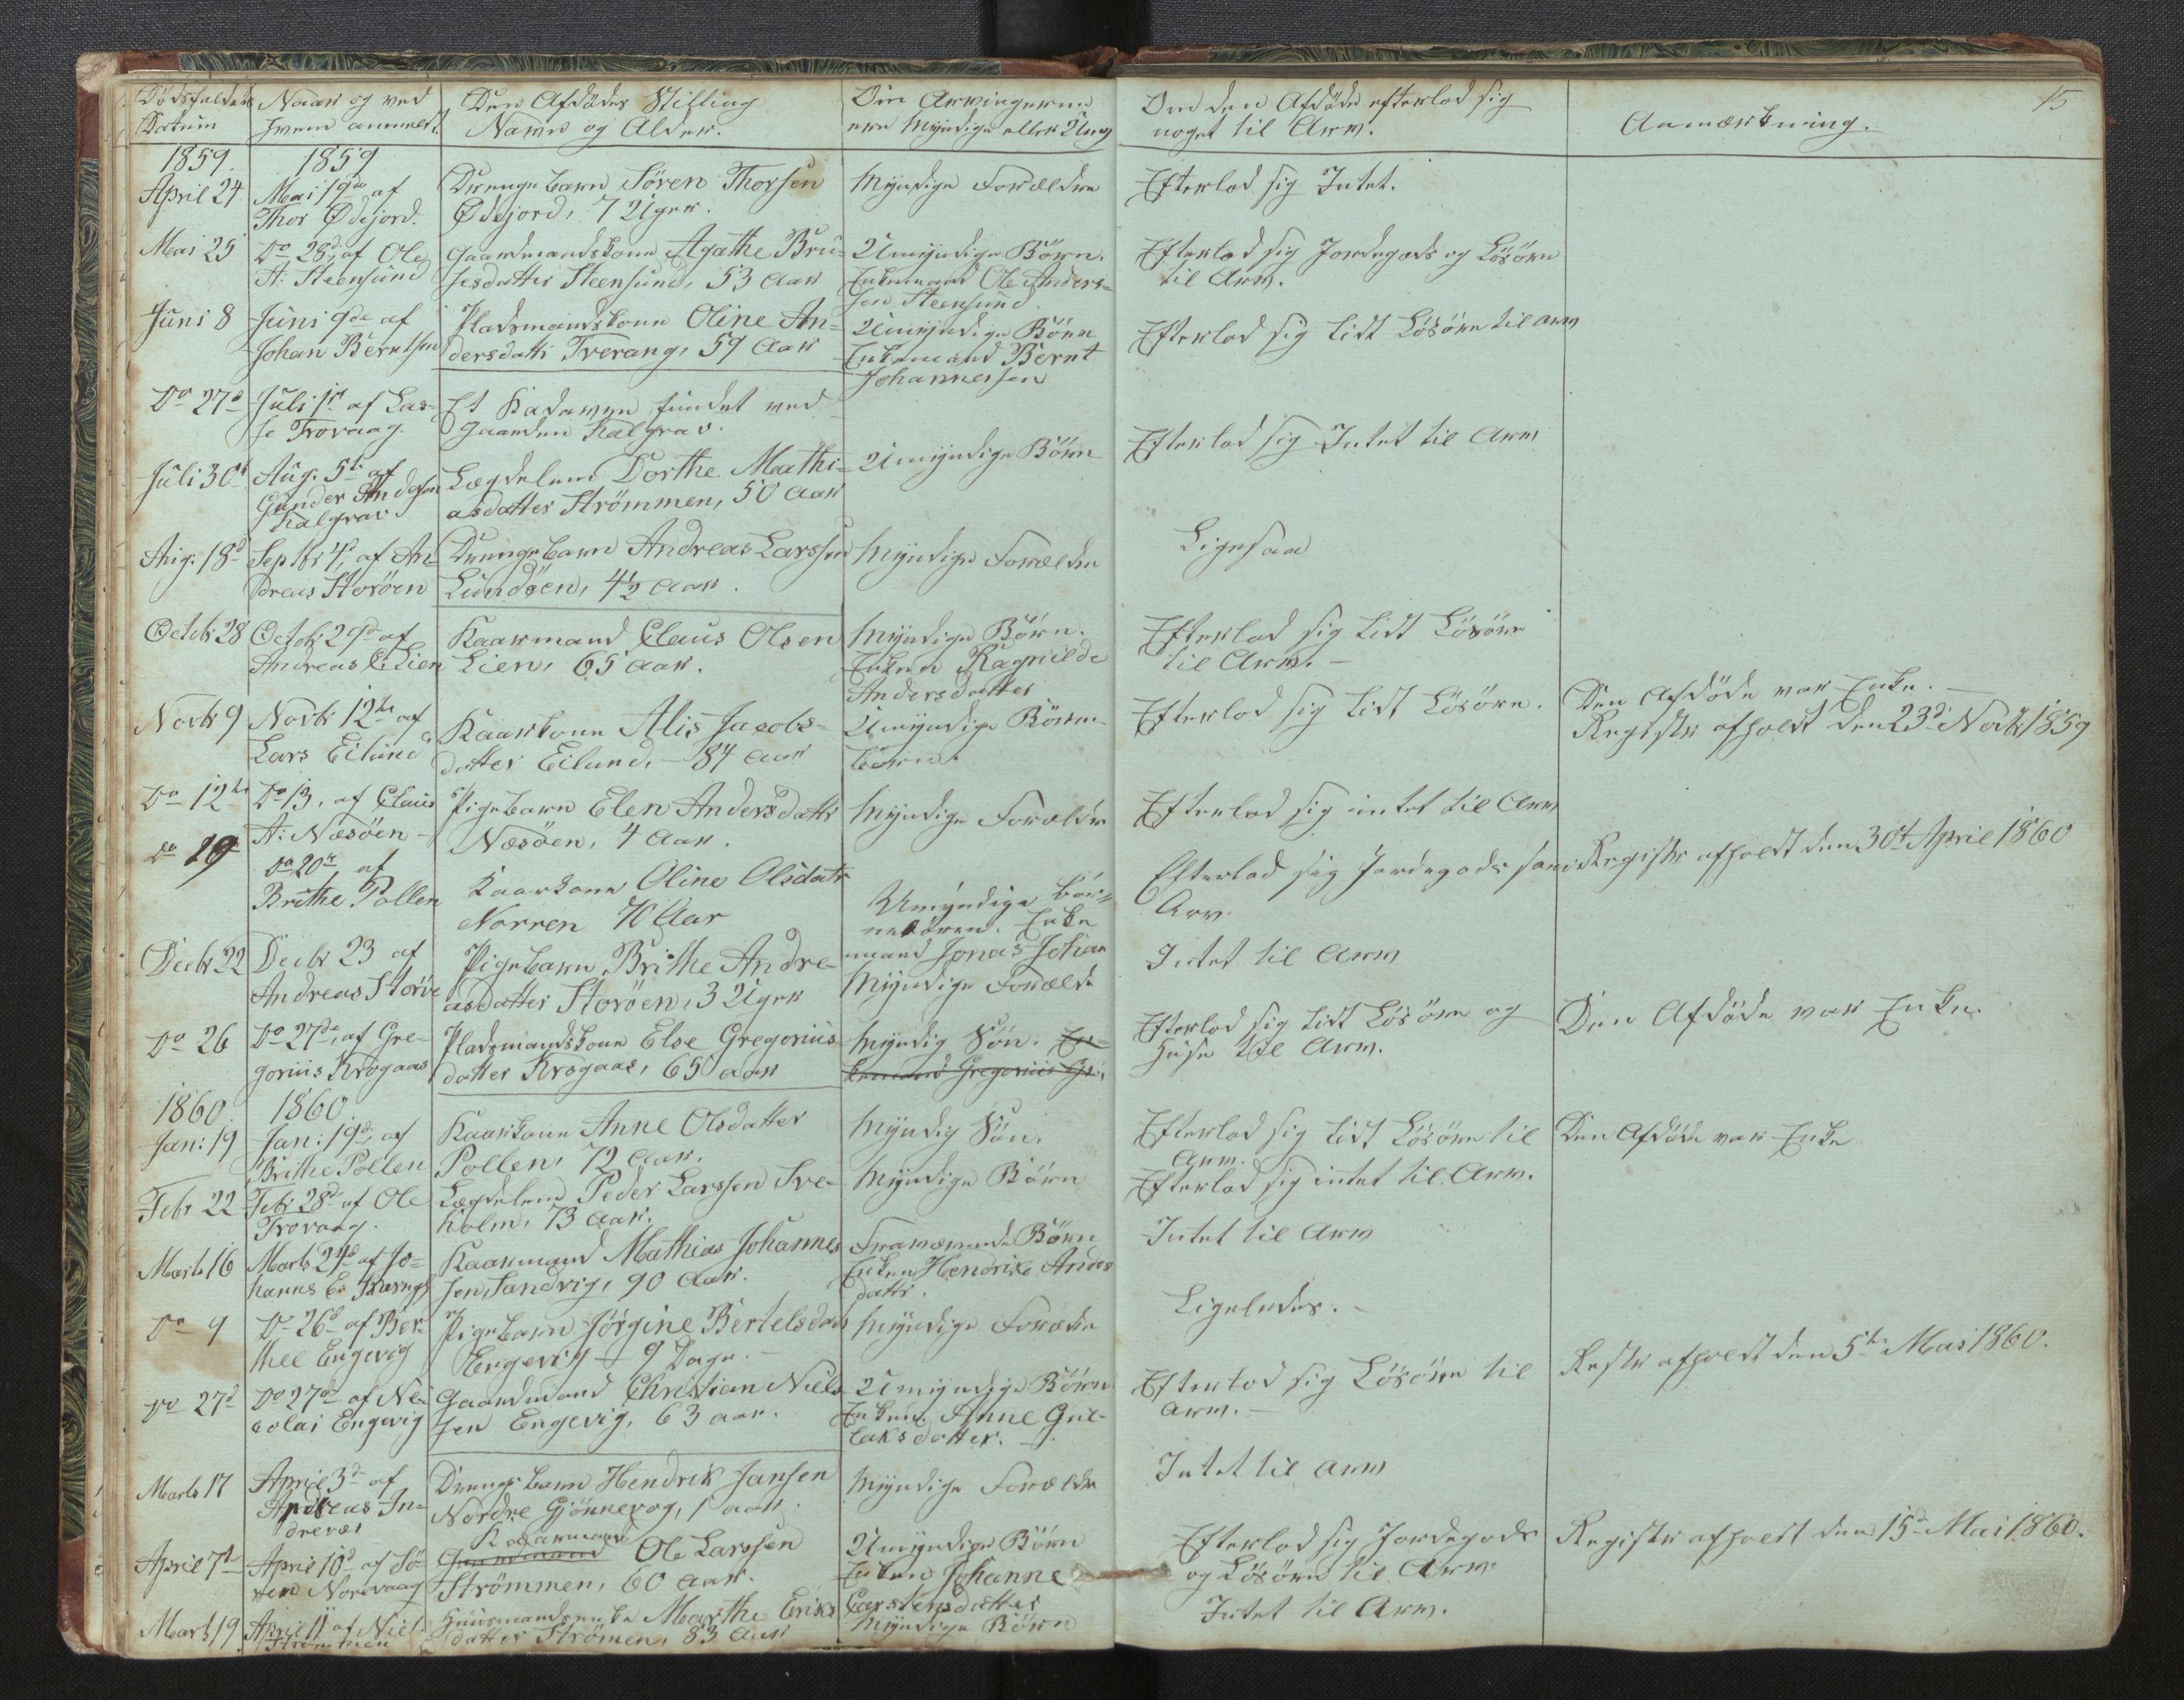 15
Dödsfaldets Datum
Naar og ved hvem anmeldt
Den Afdödes Stilling Navn og Alder.
Om Arvingerne ere Myndige eller Umy
Om den Afdöde efterlod sig noget til Arv.
Anmærkning.
1859. 1859
April 24
Mai 19de af Thor Ødejord.
Drengebarn Sören Thorsen
Ødejord, 7 Uger.
Myndige Forældre
Efterlod sig Intet.
Mai 25
Do 28d af Ole
A: Steensund
Gaardmandskone Agathe Bru-
sesdatter Steensund, 53 Aar
Umyndige Börn.
Enkemand Ole Anders-
sen Steensund
Efterlod sig Jordegods og Lösöre
til Arv.
Juni 8
Juni 9de af
Johan Berntsen
Pladsmandskone Oline An-
dersdattr Tverang, 59 Aar
Umyndige Börn
Enkemand Bernt
Johannessen
Efterlod sig lidt Lösöre til Arv
Do 27d
Juli 1st af Las-
se Trovaag.
Et Kadaver fundet ved
Gaarden Kalgrav.
Juli 30t
Aug. 5te af
Gunder Andersen
Kalgrav
Lægdelem Dorthe Mathi-
asdatter Strömmen, 50 Aar
Umyndige Börn
Efterlod sig Intet til Arv
Aug. 18d
Septbr 4d, af An-
dreas Storöen
Drengebarn Andreas Larssen
Lundöen, 4½ Aar.
Myndige Forældre
Ligesaa
Octobr 28
Octobr 29d af
Andreas C. Lien
Kaarmand Claus Olsen
Lien, 65 Aar.
Myndige Börn.
Enken Ragnilde
Andersdatter
Efterlod sig lidt Lösöre
til Arv. -
Novbr 9
Novbr 12te af
Lars Eilund
Kaarkone Alis Jacobs-
datter Eilund, - 84 Aar
Umyndige Börne-
börn.
Efterlod sig lidt Lösöre.
Den Afdöde var Enke. -
Registr afholdt den 23d Novbr 1859
Do 12te
Do 13, af Claus
A: Næsöen -
Pigebarn Elen Andersdattr
Næsöen, 4 Aar.
Myndige Forældre
Efterlod sig intet til Arv
Do 19
Do 20de af
Brithe Pollen
Kaarkone Oline Olsdatr
Norren 70 Aar
Umyndige bör-
nebören. Enke
mand Jonas Johan
Efterlod sig Jordegods som
Arv.
Registr afholdt den 30t April 1860
Decbr 22
Decbr 23 af
Andreas Storöe
Pigebarn Brithe Andre-
asdatter Storöen, 3 Uger
Myndige Forældre
Intet til Arv
Do 26
Do 27de, af Gre-
gorius Krogaas
Pladsmandskone Else Gregorius-
datter Krogaas, 65 Aar
Myndig Sön. En-
kemand Gregorius Gr.
Efterlod sig lidt Lösöre og
Huse til Arv.
Den Afdöde var Enke.
1860. 1860
Jan: 19
Jan: 19d, af
Brithe Pollen
Kaarkone Anne Olsdatter
Pollen, 72 Aar.
Myndig Sön.
Efterlod sig lidt Lösöre til
Arv.
Den Afdöde var Enke
Febr 22
Febr 28d af Ole
Trovaag.
Lægdelem Peder Larssen Tve-
holm, 73 Aar.
Myndige Börn
Efterlod sig intet til Arv.
Marts 16
Marts 24d af Jo-
hannes E.
Kaarmand Mathias Johannes
sen Sandvig, 90 Aar.
Fraværende Börn
Enken Hendrike Anders
dattr.
Intet til Arv
Do 9
Do 26d af Ber-
thel Engevig
Pigebarn Jörgine Bertelsdatr
Engevig - 9 Dage. -
Myndige Forældre
Ligeledes. -
Do 27d
Do 27de af Ni-
colai Engevig
Gaardmand Christian Niels
sen Engevig, 63 Aar.
Umyndige Börn
Enken Anne Gul-
laksdatter. -
Efterlod sig Lösöre til
Arv. -
Restr afholdt den 5te Mai 1860.
Marts 17
April 3d af
Andreas In-
drevær
Drengebarn Hendrik Jansen
Nordre Gjönnevog, 1 Aar.
Myndige Forældre
Intet til Arv
April 7de
April 10d af Sö-
ren Nordvaag
Kaarmand
Gaardmand Ole Larssen
Strömmen, 60 Aar.
Umyndige Börn
Enken Johanne
Carstensdatter
Efterlod sig Jordegods
og Lösöre til Arv.
Registr afholdt den 15d Mai 1860.
Marts 19
April 11 af Niels
Strömmen
Huusmandsenke Marthe Eriks
datter Strömen, 83 Aar
Myndige Börn
Intet til Arv.